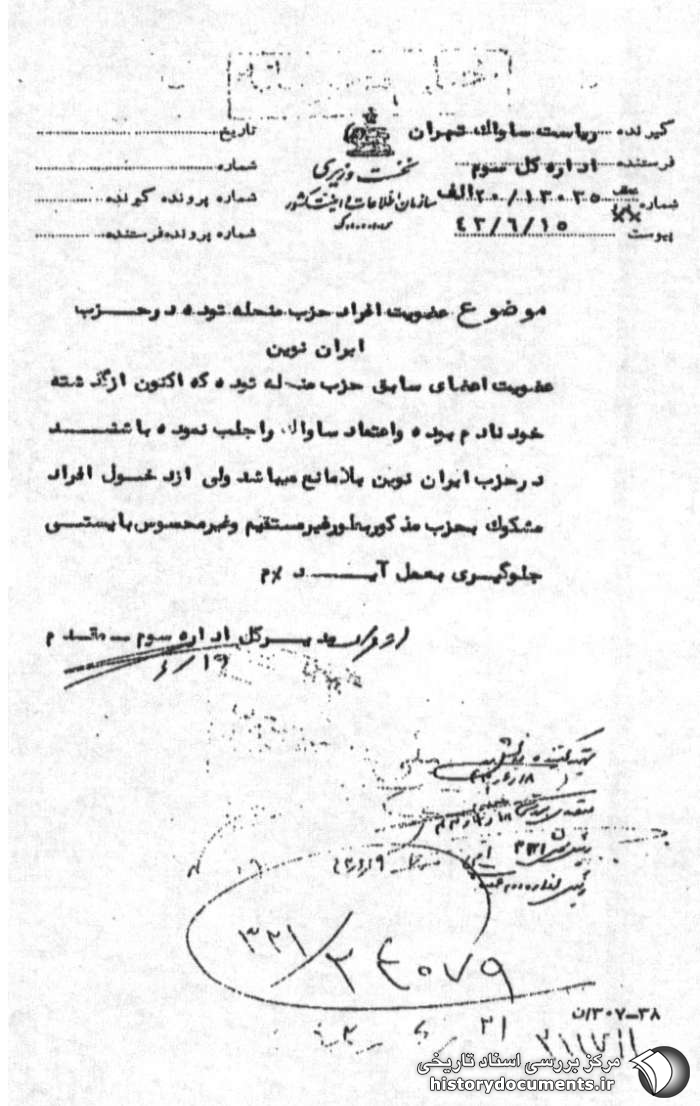 گیرنده ریاست ساواک تهران
فرستنده اداره کل سوم
شماره ۲۰/۱۳۰۳۵الف
پیوست ۴۳/۶/۱۵
نخست وزیری
سازمان اطلاعات و امنیت کشور
س.ا.و.ا.ک
تاریخ
شماره
شماره پرونده گیرنده
شماره پرونده فرستنده
موضوع عضویت افراد حزب منحله توده در حزب
ایران نوین
عضویت اعضای سابق حزب منحله توده که اکنون از گذشته
خود نادم بوده و اعتماد ساواک را جلب نموده باشند
در حزب ایران نوین بلامانع میباشد ولی از دخول افراد
مشکوک بحزب مذکور بطور غیر مستقیم و غیر محسوس بایستی
جلوگیری بعمل آید
مدیر کل اداره سوم - مقدم
۳۲۱/۲۴۰۷۹
۳۰۷-۳۸/ن
مرکز بررسی اسناد تاریخی
historydocuments.ir